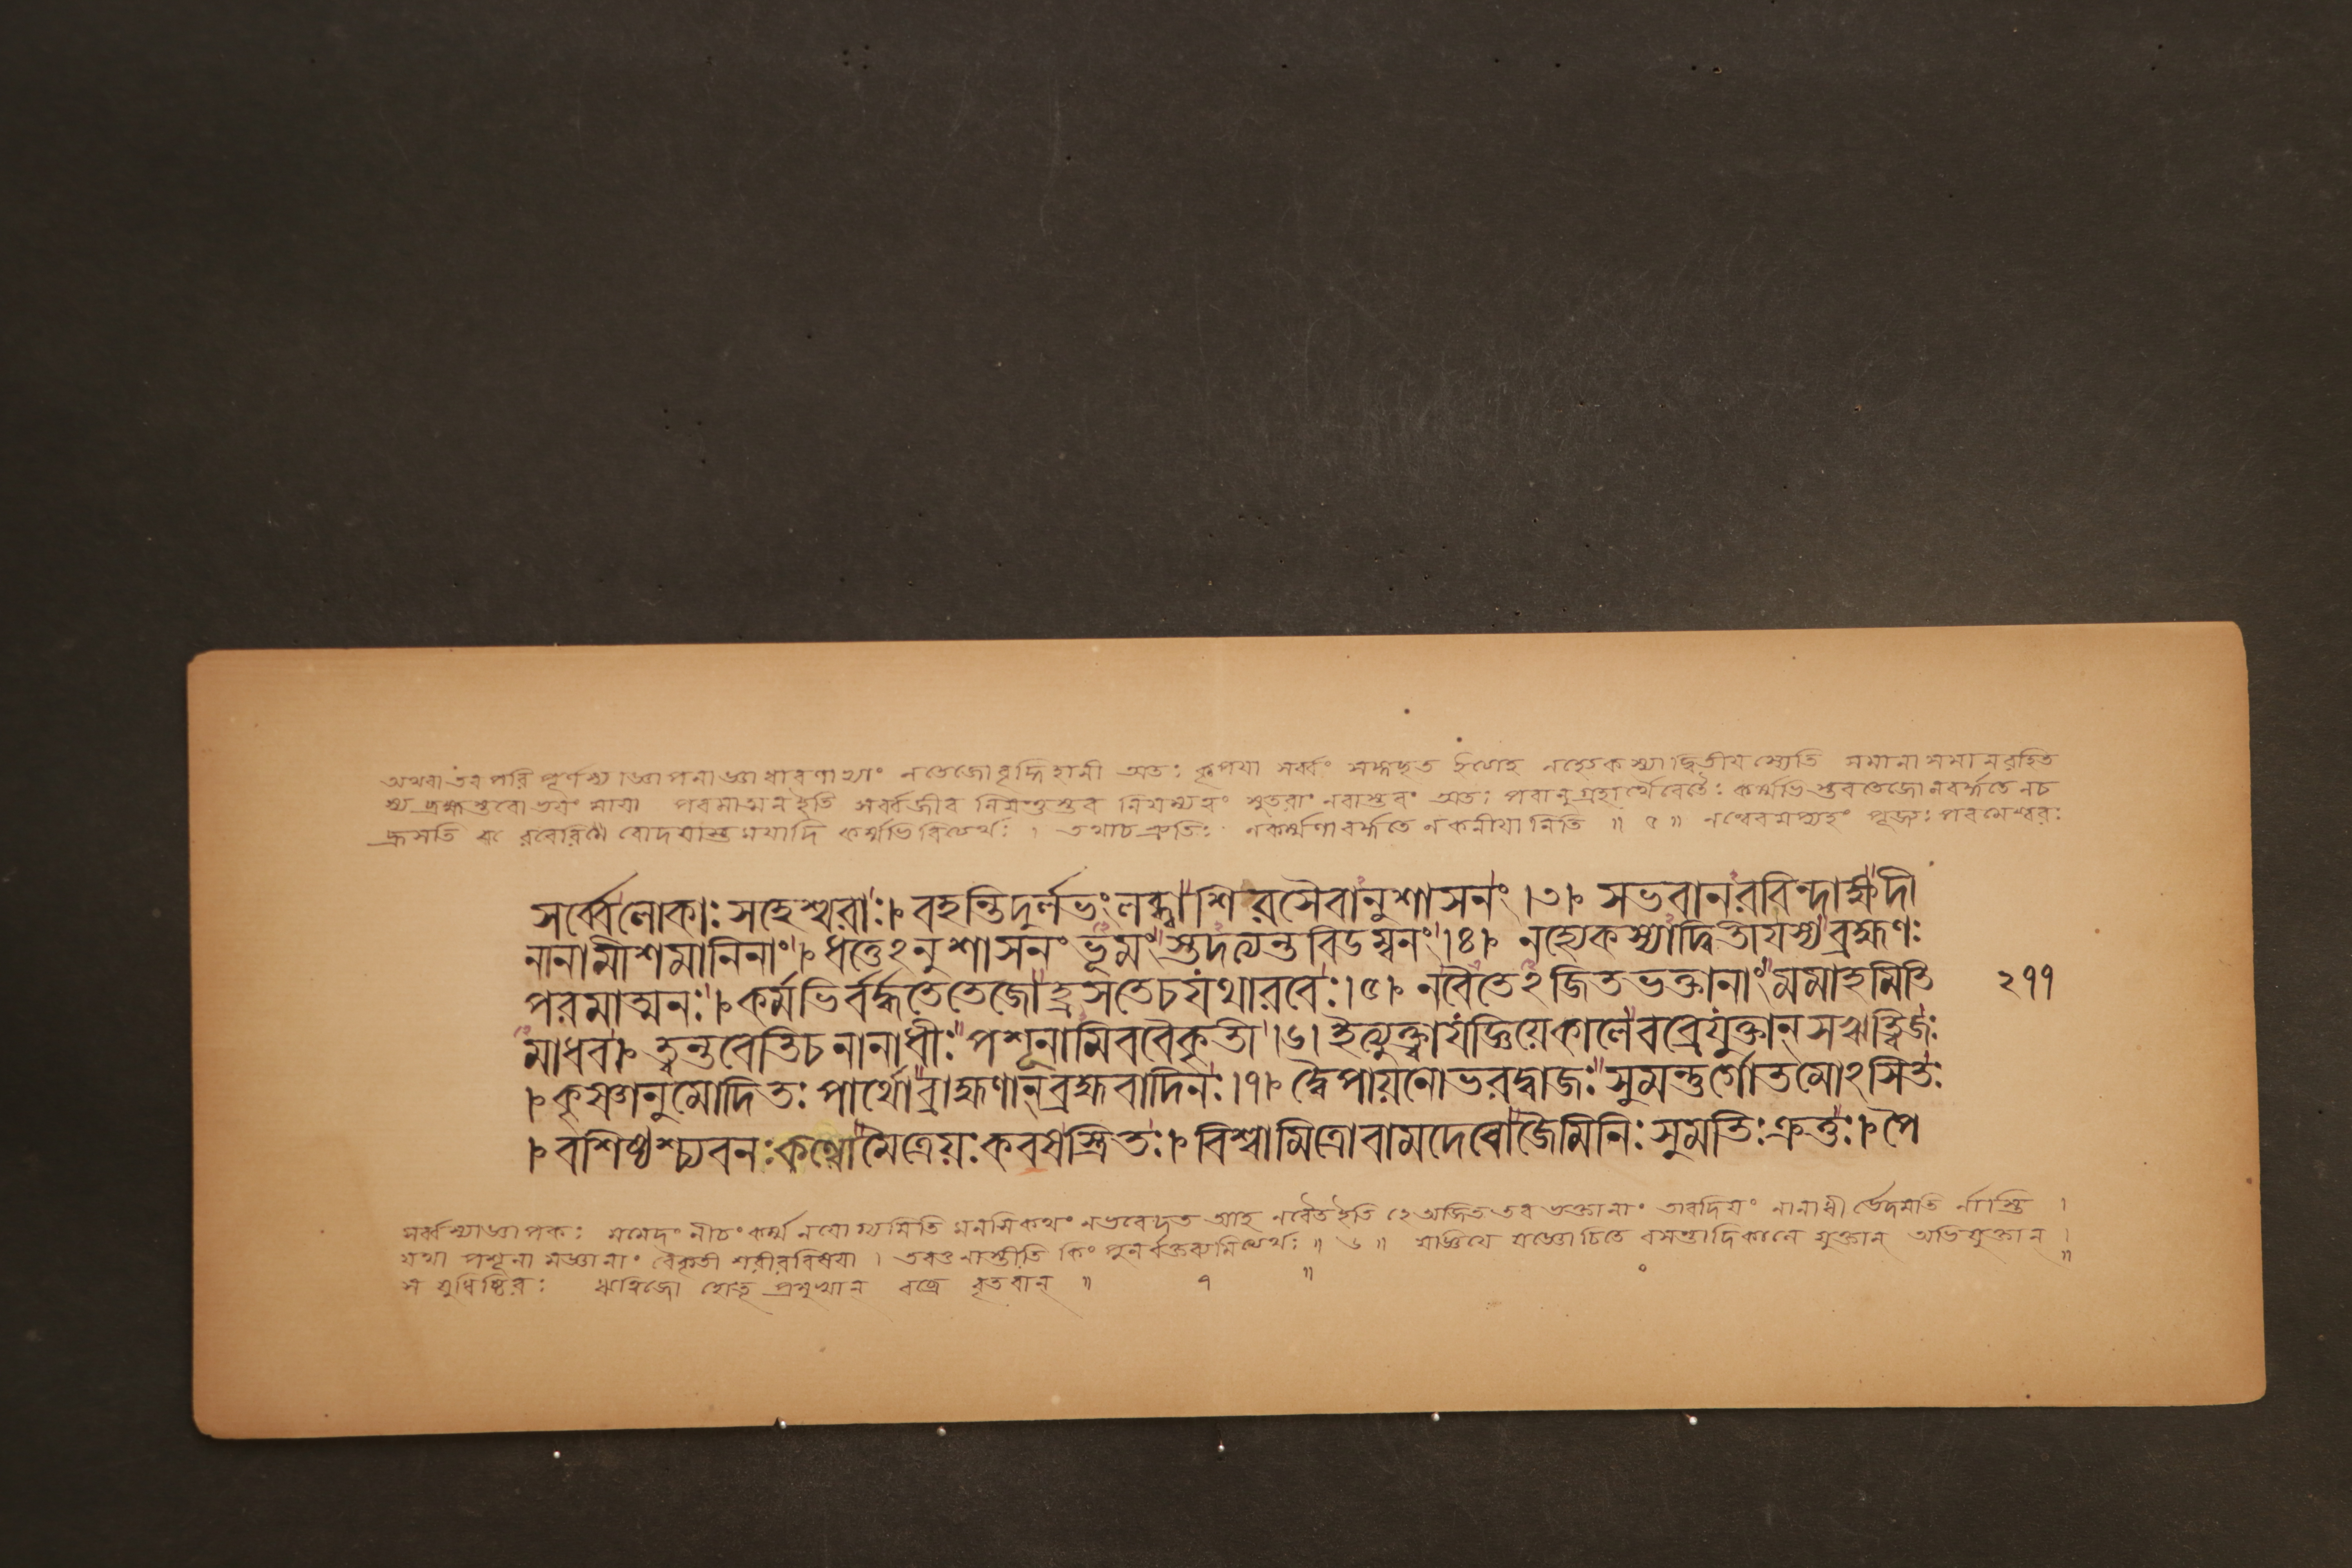 অথবা তব পরিপূর্ণস্য আজ্ঞাপনাজ্ঞাধারণাভ্যাং নতেজোবৃদ্ধিহানী অতঃ কৃপয়া সর্ব্বং নহ্যেকস্যাদ্বিতীয়স্যেতি সমানাসমানরহিত
স্য ব্রহ্মণ পরমাত্মন ইতি সর্ব্বজীব নিয়ন্তুস্তব অতঃ পরানুগ্রহার্থৈরেতৈঃ কর্ম্মভিস্তবতেজোনবর্দ্ধতে নচ
হ্রসতি রবেরিবোদয়াস্তময়াদি কর্ম্মভিরিত্যর্থঃ । তথাচশ্রুতিঃ নকর্ম্মণাবর্দ্ধতে নকনীয়ানিতি ॥ ৫ ॥ পূজ্যঃ পরমেশ্বরঃ
সর্ব্বেলোকাঃ সহেশ্বরাঃ। বহন্তিদুর্লভংলব্ধ্বাশিরসৈবানুশাসনং ।৩। সভবানরবিন্দাক্ষদী
নানামীশমানিনাং। ধত্তেঽনুশাসনং ভূমংস্তদত্যন্তবিডম্বনং।৪। নহ্যেকস্যাদ্বিতীয়স্যব্রহ্মণঃ
পরমাত্মনঃ। কর্মভির্বর্দ্ধতেতেজোহ্রসতেচযথারবেঃ।৫। নবৈতেঽজিতভক্তানাংমমাহমিতি ২৭৭
মাধব। ত্বন্তবেতিচনানাধীঃপশূনামিববৈকৃতী ।৬। ইত্যুক্ত্বাযজ্ঞিয়েকালেবব্রেযুক্তান্ সঋত্বিজঃ
। কৃষ্ণানুমোদিতঃ পার্থোব্রাহ্মণান্‌ব্রহ্মবাদিনঃ।৭। দ্বৈপায়নোভরদ্বাজঃসুমন্তুর্গোতমোঽসিতঃ
। বশিষ্ঠশ্চ্যবনঃকণ্বোমৈত্রেয়ঃকবষস্ত্রিতঃ। বিশ্বামিত্রোবামদেবোজৈমিনিঃ সুমতিঃক্রতুঃ। পৈ
সর্ব্বস্যাজ্ঞাপকঃ মমেদং নীচং কর্ম্ম নযোগ্যমিতি মনসিকথং নভবেদ্যত আহ নবৈতইতি হে অজিত তব ভক্তানাং তাবদিয়ং নানাধী র্ভেদমতি র্নাস্তি ।
যথা পশূনামজ্ঞানাং বৈকৃতী শরীরবিষয়া । তবতু নাস্তীতি কিং পুনর্বক্তব্যমিত্যর্থঃ ॥ ৬ ॥ যজ্ঞিয়ে যজ্ঞোচিতে বসন্তাদিকালে যুক্তান্ অভিযুক্তান্ ।
স যুধিষ্ঠিরঃ ঋত্বিজো হোতৃপ্রমুখান্ বব্রে বৃতবান্ ॥ ৭ ॥